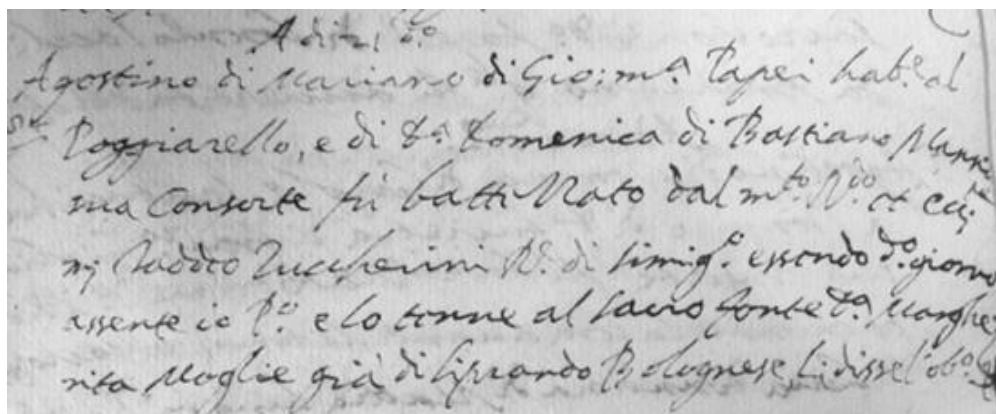 A di d.o
Agostino di Mariano di Gio: m.a Papei hab.e al
Poggiarello, e di d.a Domenica di Bastiano
sua Consorte fù battezzato dal m.to
Zuccherini di essendo d.o giorno
assente io e lo tenne al sacro fonte d.a Marghe
rita Moglie già di Liprando Bolognese li disse l'ob.o